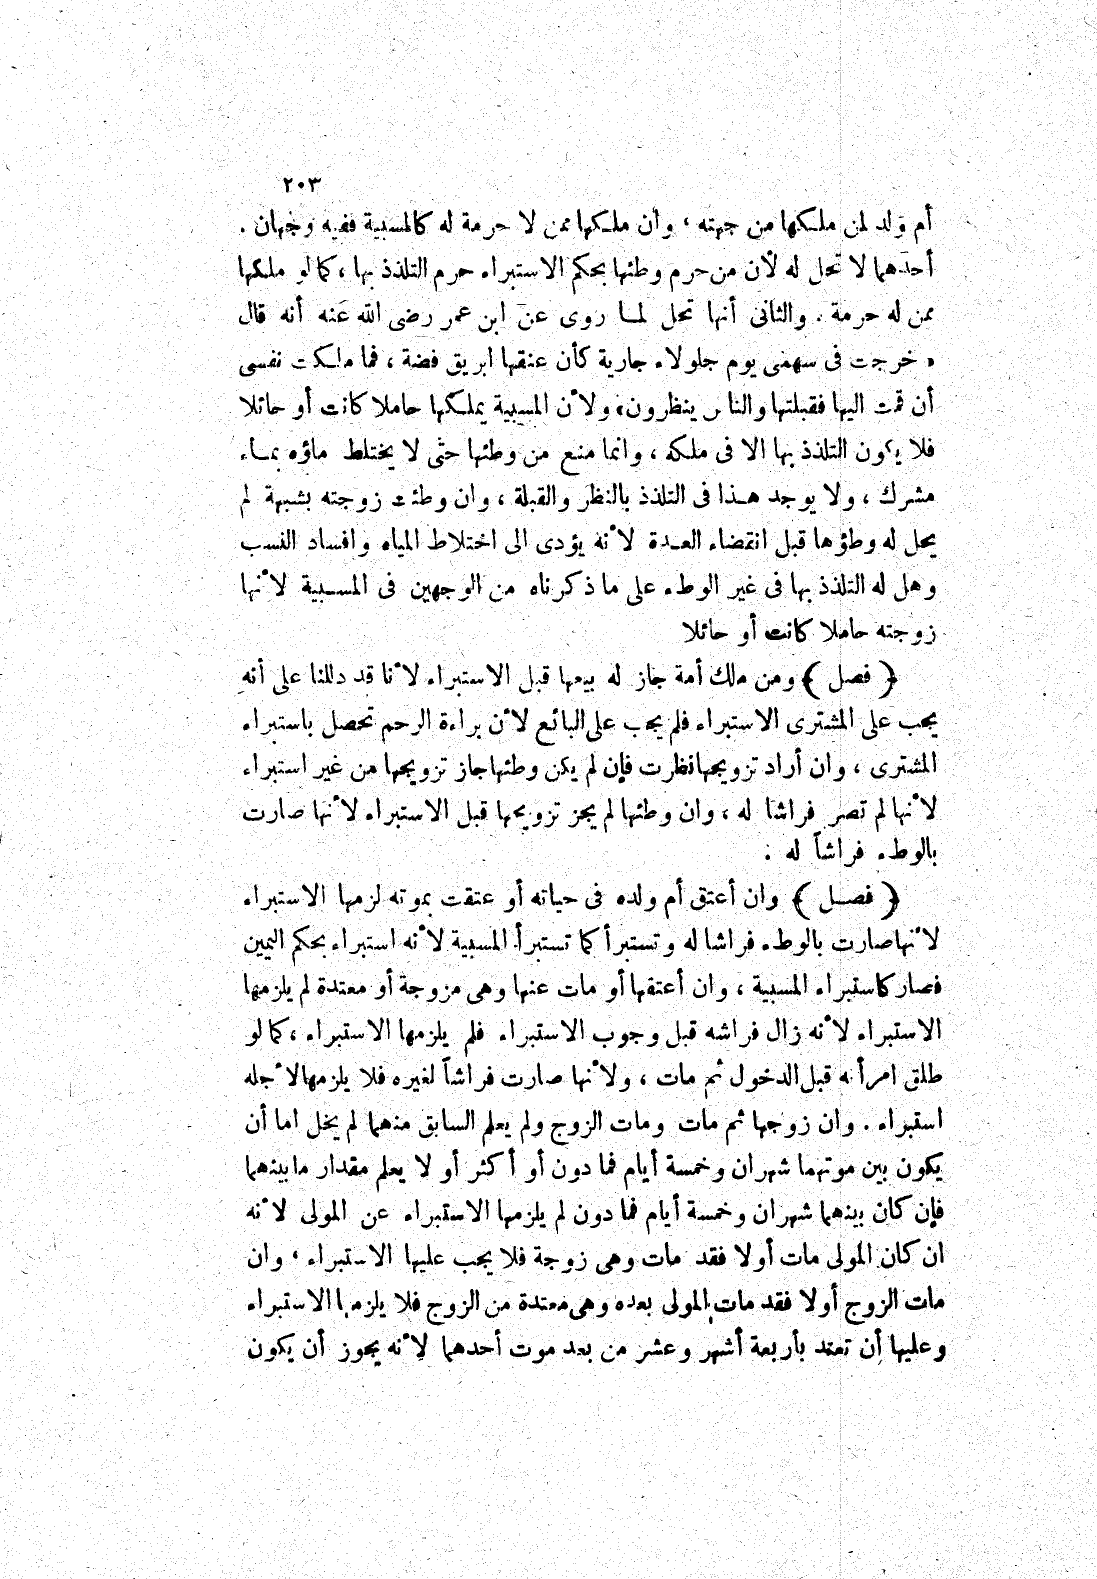 ٢٠٣
أم ولد لمن ملكها من جهته ، وان ملكها ممن لا حرمة له كالمسبية ففيه وجهان .
أحدهما لا تحل له لأن من حرم وطئها بحكم الاستبراء حرم التلذذ بها ، كما لو ملكها
ممن له حرمة . والثانى أنها تحل لما روى عن ابن عمر رضى الله عنه أنه قال
« خرجت فى سهمى يوم جلولاء جارية كأن عنقها ابريق فضة ، فما ملكت نفسى
أن قمت اليها فقبلتها والناس ينظرون» ولأن المسبية يملكها حاملا كانت أو حائلا
فلا يكون التلذذ بها الا فى ملكه ، وانما منع من وطئها حتى لا يختلط ماؤه بماء
مشرك ، ولا يوجد هذا فى التلذذ بالنظر والقبلة ، وان وطئت زوجته بشبهة لم
يحل له وطؤها قبل انقضاء العدة لأنه يؤدى الى اختلاط المياه وافساد النسب
وهل له التلذذ بها فى غير الوطء على ما ذكرناه من الوجهين فى المسبية لأنها
زوجته حاملا كانت أو حائلا
﴿ فصل ﴾ ومن ملك أمة جاز له بيعها قبل الاستبراء لأنا قد دللنا على أنه
يجب على المشترى الاستبراء فلم يجب على البائع لأن براءة الرحم تحصل باستبراء
المشترى ، وان أراد تزويجها نظرت فإن لم يكن وطئها جاز تزويجها من غير استبراء
لأنها لم تصر فراشا له ، وان وطئها لم يجز تزويجها قبل الاستبراء لأنها صارت
بالوطء فراشاً له .
﴿ فصل ﴾ وان أعتق أم ولده فى حياته أو عتقت بموته لزمها الاستبراء
لأنها صارت بالوطء فراشا له وتستبرأ كما تستبرأ المسبية لأنه استبراء بحكم اليمين
فصار كاستبراء المسبية ، وان أعتقها أو مات عنها وهى مزوجة أو معتدة لم يلزمها
الاستبراء لأنه زال فراشه قبل وجوب الاستبراء فلم يلزمها الاستبراء ، كما لو
طلق امرأته قبل الدخول ثم مات ، ولأنها صارت فراشاً لغيره فلا يلزمها لأجله
استبراء . وان زوجها ثم مات ومات الزوج ولم يعلم السابق منهما لم يخل اما أن
يكون بين موتهما شهران وخمسة أيام فما دون أو أكثر أو لا يعلم مقدار ما بينهما
فإن كان بينهما شهران وخمسة أيام فما دون لم يلزمها الاستبراء عن المولى لأنه
ان كان المولى مات أولا فقد مات وهى زوجة فلا يجب عليها الاستبراء ، وان
مات الزوج أولا فقد مات المولى بعده وهى معتدة من الزوج فلا يلزمها الاستبراء
وعليها أن تعتد بأربعة أشهر وعشر من بعد موت أحدهما لأنه يجوز أن يكون